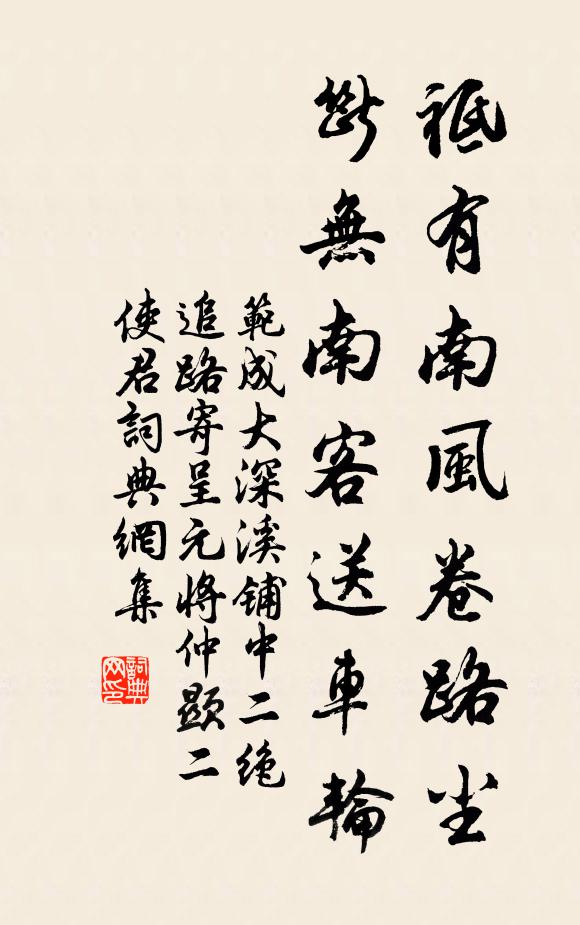 祗有南風卷路尘
斷無南客送車輪
範成大深溪鋪中二絶
追路寄呈元將仲顯二
使君詞典網集
詞典网印